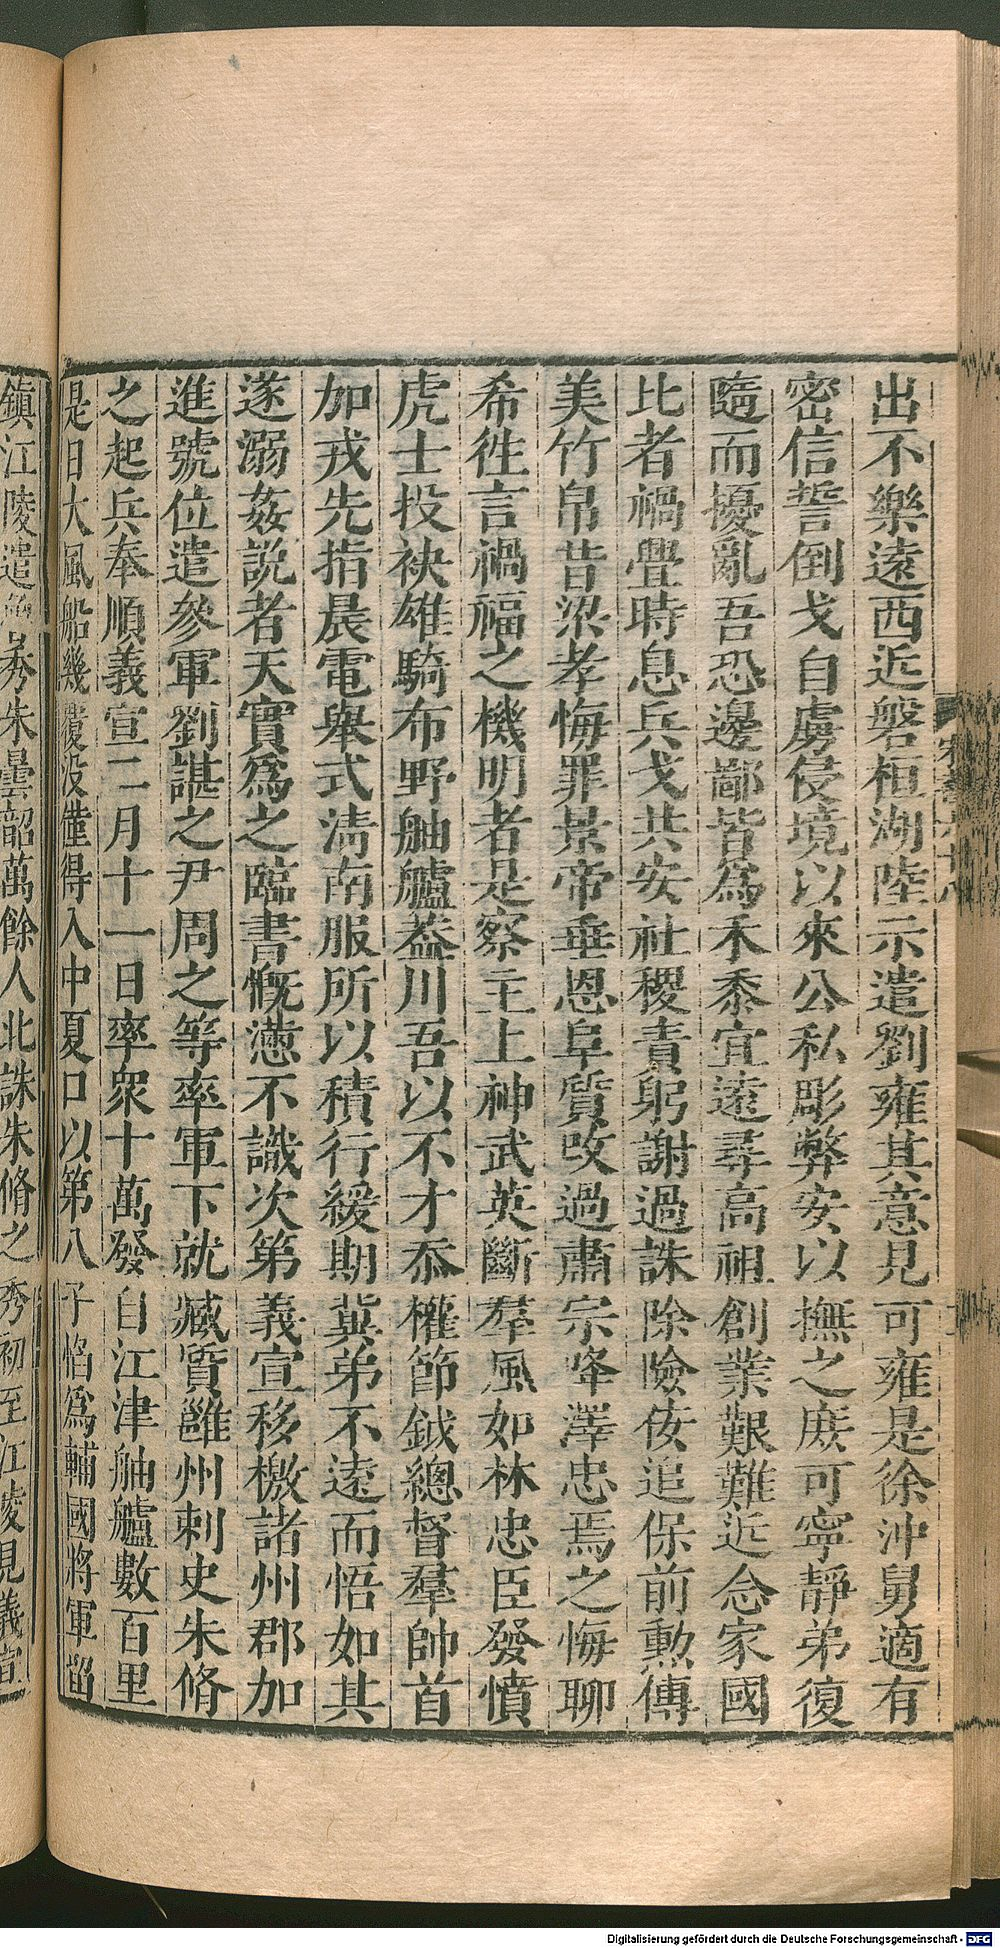 出不樂遠西近磐桓湖陸示遣劉雍其意見可雍是徐沖舅適有
密信誓倒戈自虜侵境以來公私彫弊安以撫之庶可寧靜弟復
隨而擾亂吾恐邊鄙皆為禾黍宜遠尋高祖創業艱難近念家國
比者禍釁時息兵戈共安社稷責躬謝過誅除險佞追保前勳傳
美竹帛昔梁孝悔罪景帝垂恩阜質改過肅宗降澤忠焉之悔聊
希徃言禍福之機明者是察主上神武英斷羣風如林忠臣發憤
虎士投袂雄騎布野舳艫葢川吾以不才忝權節鉞總督羣帥首
加戎先指晨電舉式淸南服所以積行緩期兾弟不遠而悟如其
遂溺姦説者天實爲之臨書慨懣不識次第義宣移檄諸州郡加
進號位遣參軍劉諶之尹周之等率軍下就臧質雝州刺史朱脩
之起兵奉順義宣二月十一日率衆十萬發自江津舳艫數百里
是日大風船幾覆没僅得入中夏口以第八子慆爲輔國將軍畱
鎮江陵遣魯秀朱曇韶萬餘人北誅朱脩之秀初至江陵見義宣
Digitalisierung gefördert durch die Deutsche Forschungsgemeinschaft - DFG